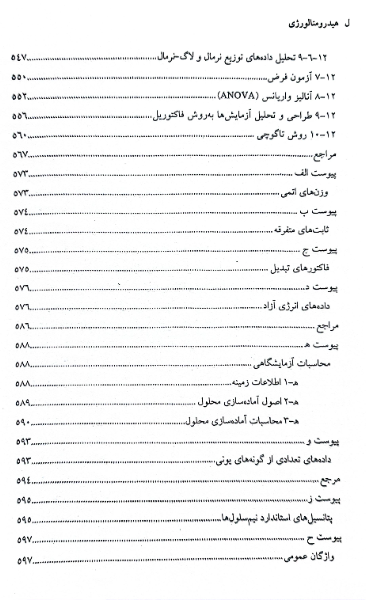 ل هیدرومتالورژی
۱۲-۶-۹ تحلیل داده‌های توزیع نرمال و لاگ-نرمال ۵۴۷
۱۲-۷ آزمون فرض ۵۵۰
۱۲-۸ آنالیز واریانس (ANOVA) ۵۵۲
۱۲-۹ طراحی و تحلیل آزمایش‌ها به‌روش فاکتوریل ۵۵۶
۱۲-۱۰ روش تاگوچی ۵۶۰
مراجع ۵۶۷
پیوست الف ۵۷۳
وزن‌های اتمی ۵۷۳
پیوست ب ۵۷۴
ثابت‌های متفرقه ۵۷۴
پیوست ج ۵۷۵
فاکتورهای تبدیل ۵۷۵
پیوست د ۵۷۶
داده‌های انرژی آزاد ۵۷۶
مراجع ۵۸۶
پیوست ه ۵۸۸
محاسبات آزمایشگاهی ۵۸۸
ه-۱ اطلاعات زمینه ۵۸۸
ه-۲ اصول آماده‌سازی محلول ۵۸۹
ه-۳ محاسبات آماده‌سازی محلول ۵۹۰
پیوست و ۵۹۳
داده‌های تعدادی از گونه‌های یونی ۵۹۳
مرجع ۵۹۴
پیوست ز ۵۹۵
پتانسیل‌های استاندارد نیم‌سلول‌ها ۵۹۵
پیوست ح ۵۹۷
واژگان عمومی ۵۹۷